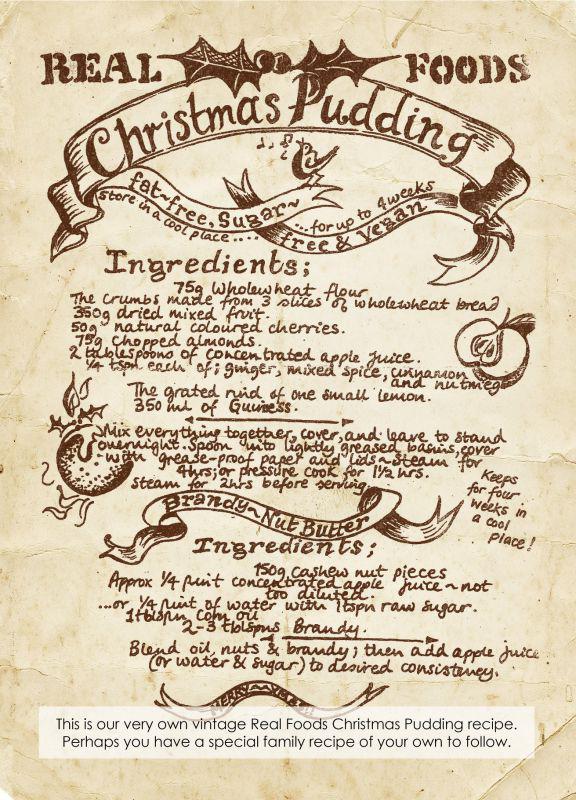 REAL FOODS
Christmas Pudding
fat-free, Sugar~
free & Vegan
Store in a cool place .....
...for up to 4 weeks
Ingredients;
75g Wholewheat flour
The crumbs made from 3 slices of wholewheat bread
350g dried mixed fruit.
50g natural coloured cherries.
75g chopped almonds.
2 tablespoons of concentrated apple juice.
1/4 tspn each of; ginger, mixed spice, cinnamon
and nutmeg
The grated rind of one small lemon.
350 ml of Guiness.
Mix everything together, cover, and leave to stand
overnight. Spoon into lightly greased basins, cover
with grease-proof paper and lids~steam for
4hrs; or pressure cook for 1 1/2 hrs.
Steam for 2hrs before serving.
Keeps
for four
weeks in
a cool
place!
Brandy~Nut Butter
Ingredients;
150g cashew nut pieces
Approx 1/4 pint concentrated apple juice ~ not
too diluted.
...or 1/4 pint of water with 1 tspn raw sugar.
1 tblspn corn oil
2-3 tblspns Brandy.
Blend oil, nuts & brandy; then add apple juice
(or water & sugar) to desired consistency.
MERRY~XMAS
This is our very own vintage Real Foods Christmas Pudding recipe.
Perhaps you have a special family recipe of your own to follow.